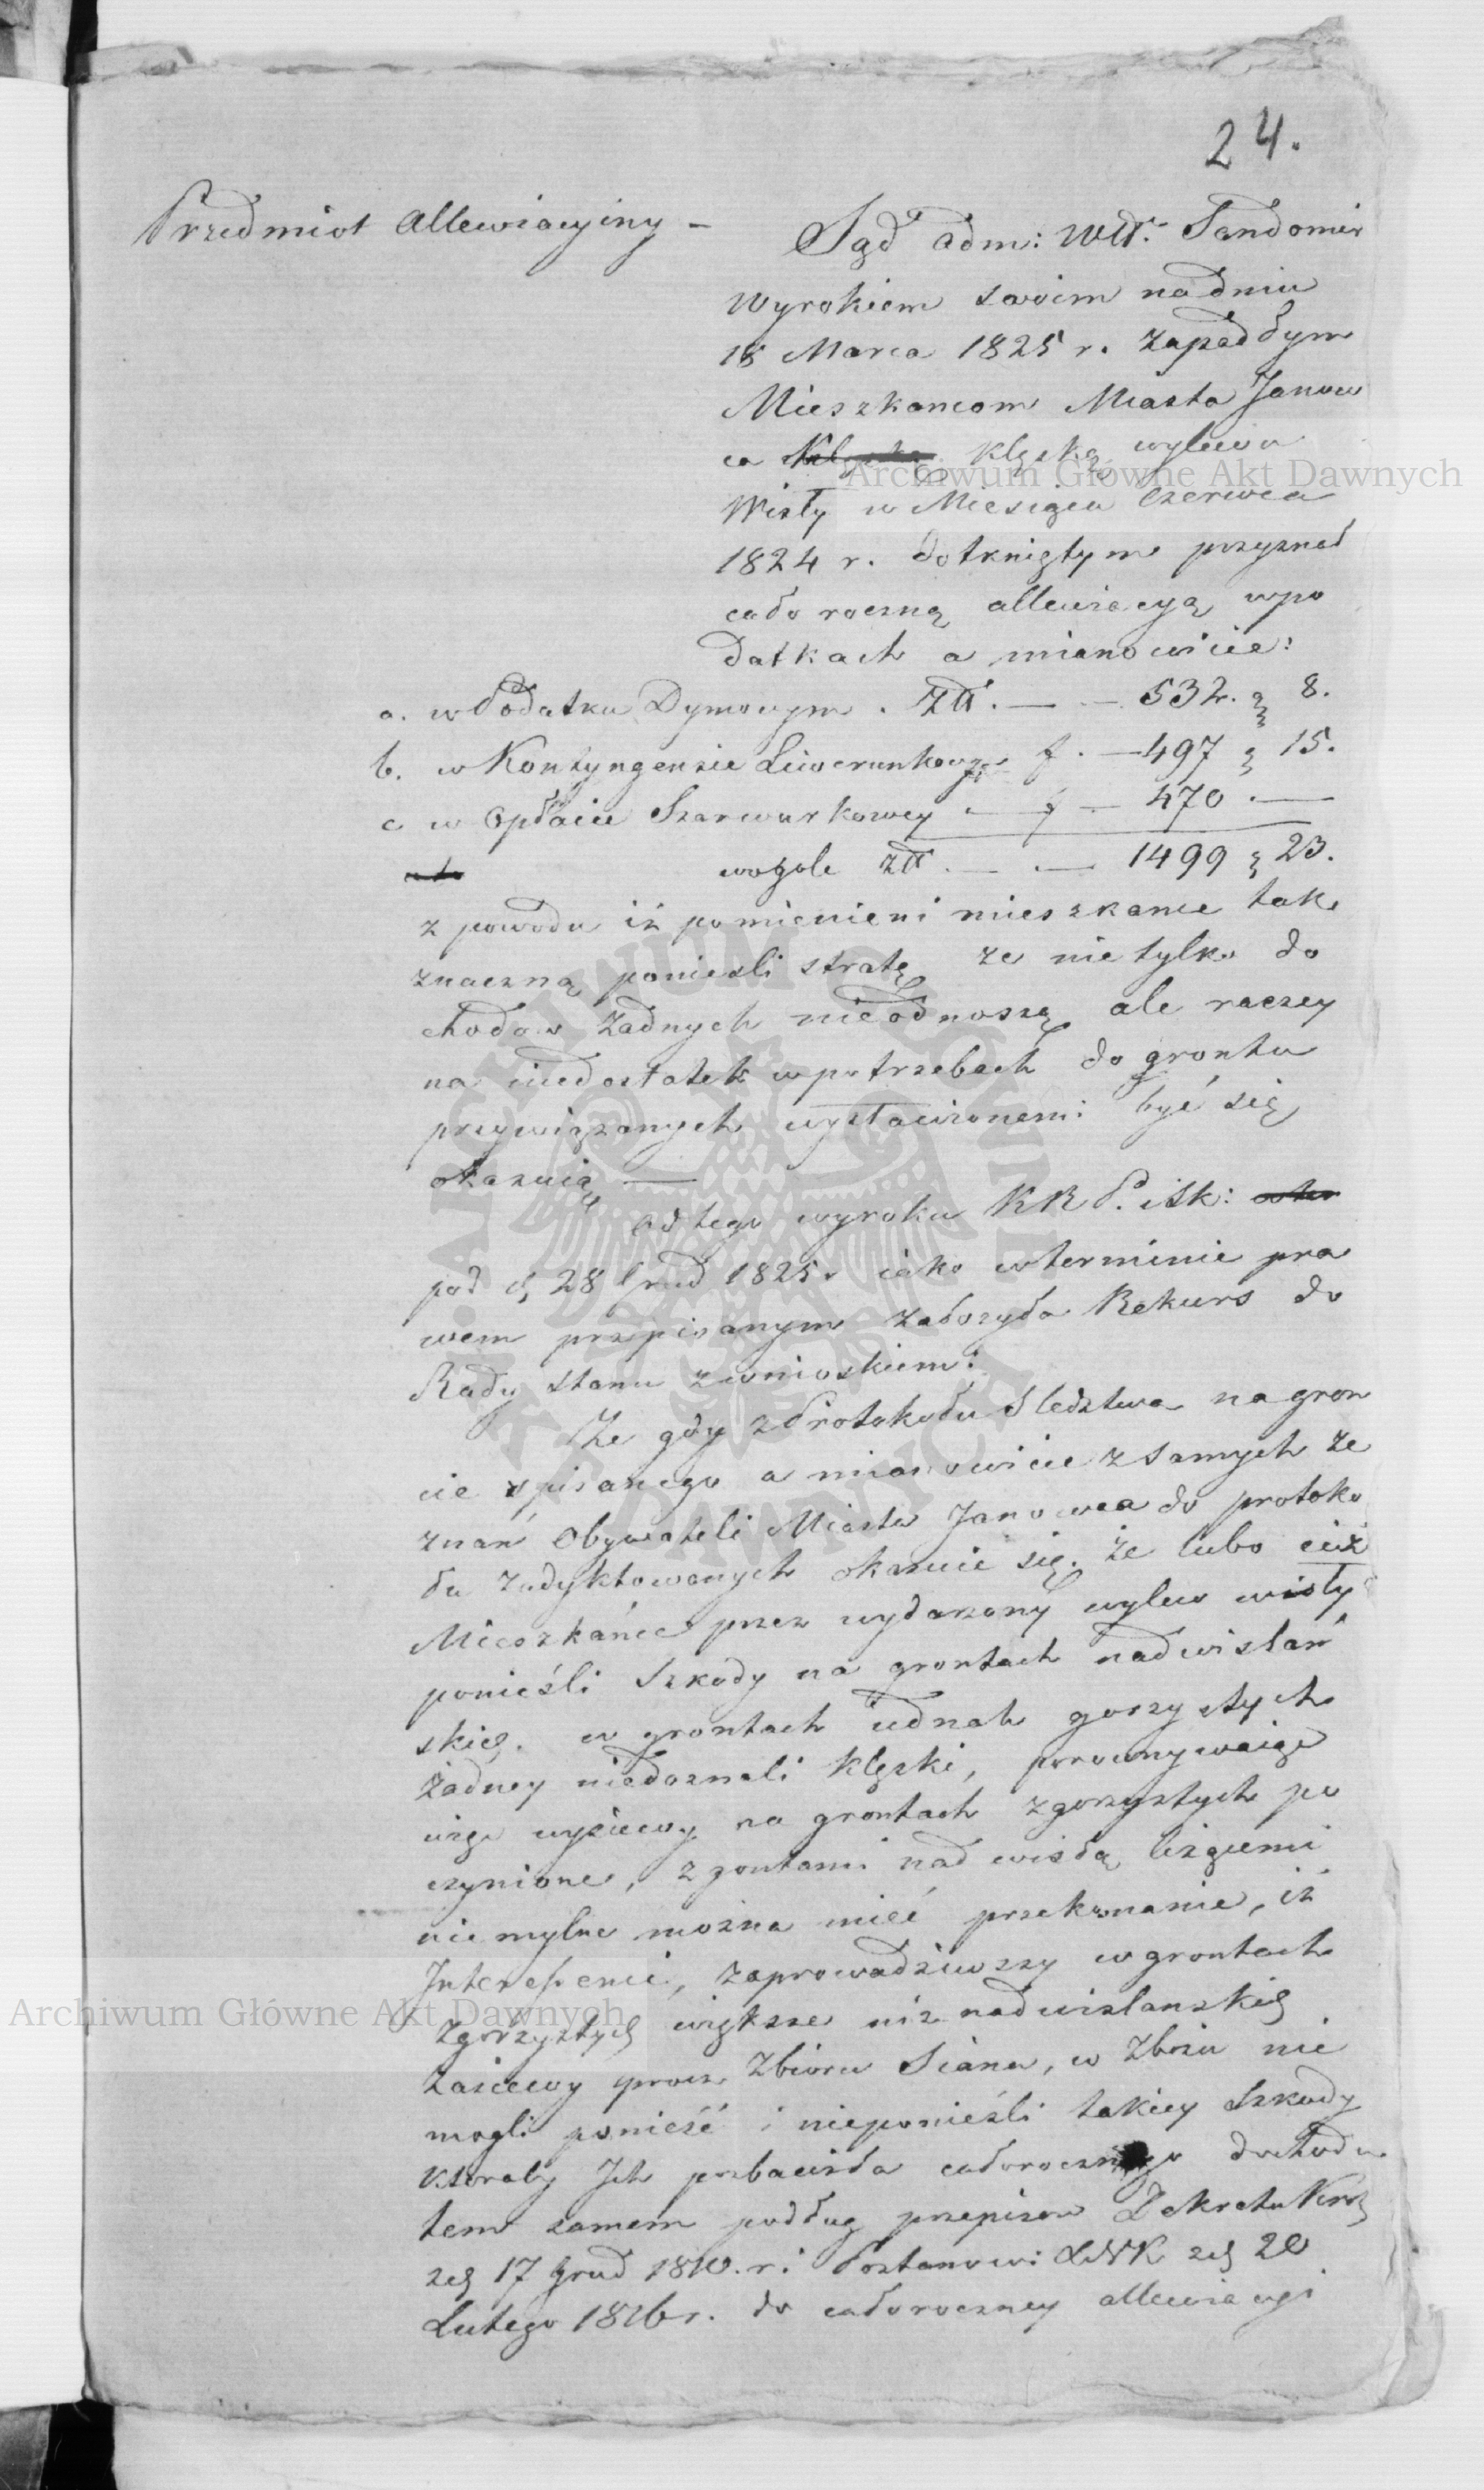 24.
Przedmiot Allewiacyiny –
Sąd adm: Wdt. Sandomir
Wyrokiem swoim na dniu
18 Marca 1825 r. zapadłym
Mieszkancom Miasta Janow
ca klęską wylewu
Wisły w Miesiącu Czerwca
1824 r. dotkniętym przyznał
całoroczną allewiacyą wpo
datkach a mianowicie:
a. w Podatku Dymowym . Złt. — — 532. 8.
b. w Kontyngensie Liwerunkowym f. — 497 15.
c w Opłacie Szarwarkowey — f — 470 —
wogole złt. — — 1499 23.
z powodu iż pomienieni mieszkance tak
znaczną ponieśli stratę ze nie tylko do
chodow żadnych nieodnoszą ale raczey
na niedostatek wpotrzebach do grontu
przywiązanych wystawionemi być się
okazuią —
od tego wyroku KRP. iSk:
pod d 28 Grud 1825 r iako wterminie pra
wem przepisanym założyła Rekurs do
Rady Stanu zwnioskiem:
Że gdy z Protokołu Sledztwa na gron
cie spisanego a mianowicie z samych ze
znań Obywateli Miasta Janowca do protoko
łu zadyktowanych okazuie się. że lubo ciż
Mieszkańce przez wydarzony wylew wisły
ponieśli Szkody na grontach nadwislań
skich. w grontach iednak gorzystych
żadney niedoznali klęski, porownywaiąc
więc wysiewy na grontach zgorzystych po
czynione, z gontami nad wisłą leżącemi
niemylne można mieć przekonanie, iż
Interessenci, zaprowadziwszy w grontach
zgórzystych większe niż nadwislanskich
Zasiewy procz Zbioru Siana, w Zbożu nie
mogli ponieść i nieponieśli takiey Szkody
ktoraby Ich pozbawiła całorocznego dochodu
tem samem podług przepisow Dekretu Kró
zd 17 Grud 1810. r. i Postanowi XNK zd 20
Lutego 1816 r. do całoroczney allewiacyi
Archiwum Główne Akt Dawnych
Archiwum Główne Akt Dawnych